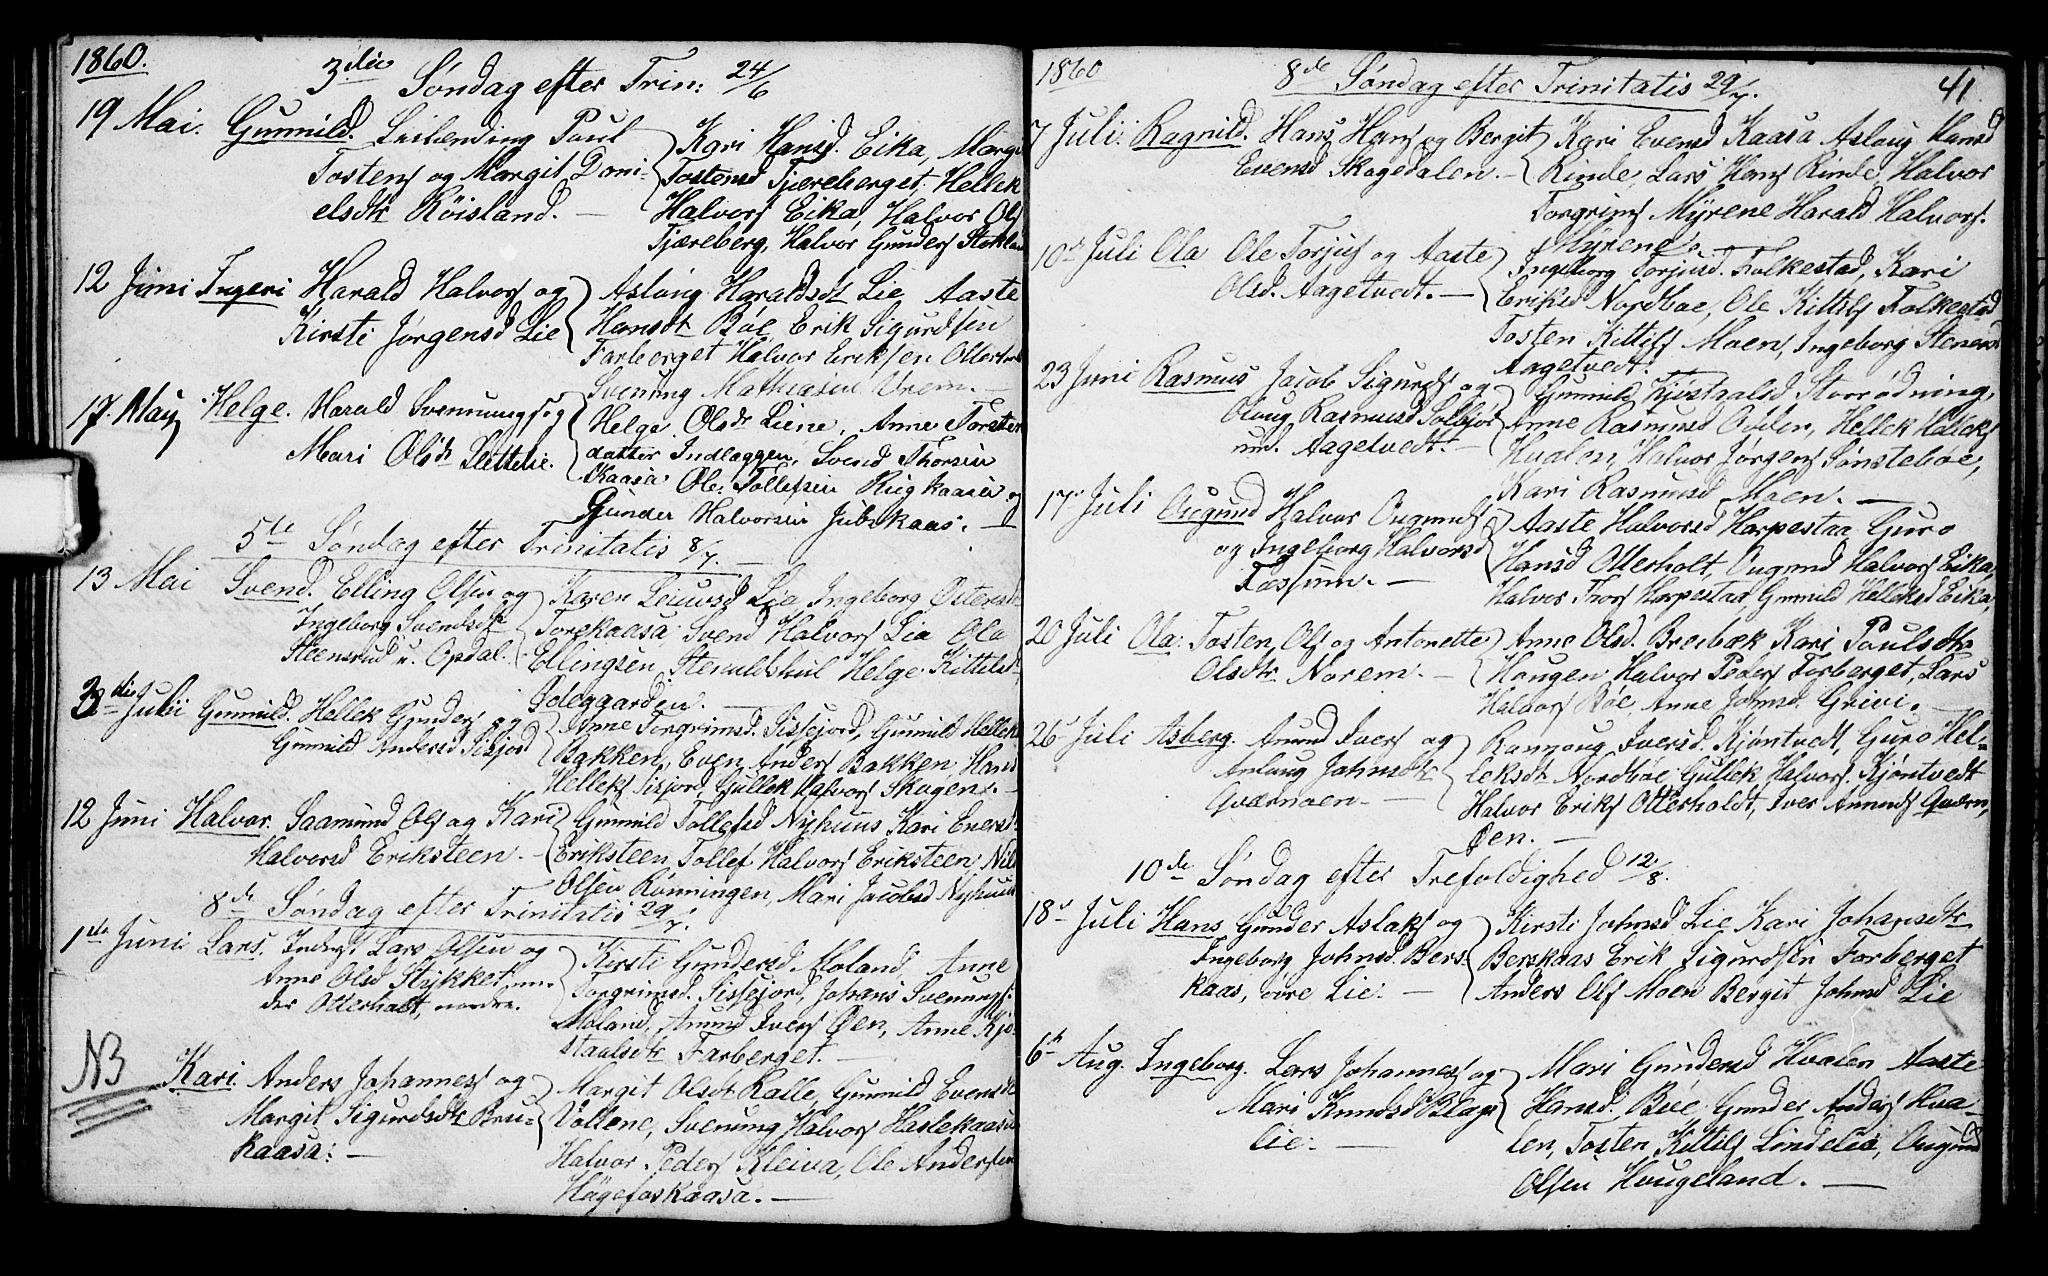 1860.
3die Søndag efter Trin: 24/6
19 Mai. Gunnild. Leilending Paul
Tostens og Margit Dani-
elsdtr Røisland. —
Kari Hansd. Eika, Margit
Tostensd Tjæreberget, Hellek
Halvors Eika, Halvor Ols
Tjæreberg, Halvor Gunders
12 Juni Ingeri Harald Halvors og
Kirsti Jørgensd Lie
Aslaug Haraldsdt Lie Aaste
Hansdt Bøe Erik Sigurdsen
Farberget Halvor Eriksen
Svenung Mathiasen Urem. —
17. May Helge. Harald Svennungs og
Mari Olsdr Slettelie.
Helge Olsdr Liene, Anne
datter Indlæggen, Svend Thorsen
Kaasa Ole Tollefsen Rugkaasa og
Gunder Halvorsen Jubskaas. —
5te Søndag efter Trinitatis 8/7. —
13 Mai Svend. Elling Olsen og
Ingeborg Svendsdtr
Steensrud u. Opdal.
Karen Lia Ingeborg
Torekaasa, Svend Halvors Lia Ola
Ellingsen, Helge Kittelsd
Ødegaarden. —
3die Juli Gunnild. Hellek Gunders og
Gunnild Andersd Sisjord
Anne Torgrimsd. Sissejord, Gunnild Helleks
Bakken, Even Anders Bakken Hans
Helleks Sisjord, Gullek Halvors Skogen. —
12 Juni Halvor. Saamund Ols og Kari
Halvorsd Eriksteen. —
Gunnild Tollefsd Nyhuus Kari Evensd
Eriksteen, Tollef Halvors Eriksteen, Nils
Olsen Rønningen, Mari Jacobsd Nyhuus
8de Søndag efter Trinitatis 29/7.
1ste Juni Lars. Inders Lars Olsen og
Anne Olsd Stykket, un-
der Otterholt, nordre.
Kirsti Gundersd Moland, Anne
Torgrimsd. Sissejord, Johans Svenungs.
Moland, Amund Ivers Øen, Anne Kjø-
staalsdtr Farberget. —
NB Kari Anders Johannes og
Margit Sigurdsdtr Bru-
kaasa: —
Margit Olsdt Kalle, Gunnild Evensdt
Vollene, Svenung Halvors Haslekaasa
Halvor Peders Kleiva, Ole Andersen
Høgefoskaasa. —
1860
8de Søndag efter Trinitatis 29/7.
41
7 Juli. Ragnild. Hans Hans og Bergit
Evensd Skogedalen. —
Kari Evensd Kaasa Aslaug Hansd
Rinde, Lars Hans Rinde, Halvor
Torgrims Myrene Harald Halvors.
Myrene. —
10de Juli Ola Ole Torjus og Aaste
Olsd. Aagetvedt. —
Ingeborg Torjusd. Folkestad, Kari
Eriksd Nordbøe, Ole Kittils Folkestad
Tosten Kittils Moen, Ingeborg Stenersd
Aagetvedt.
23 Juni Rasmus Jacob Sigurds og
Olaug Rasmusd
un. Aagetvedt. —
Gunnild Kjøstaalsd
Anne Rasmusd Hellek Halleks
Hvalen, Halvor Jørgens Sønstebøe,
Kari Rasmusd Moen. —
17de Juli Ougund Halvor Ougunds
og Ingeborg Halvorsd
Fossum. —
Aaste Halvorsd Harpestaa Guro
Hansd Otterholt, Ougund Halvors Eika,
Halvor Thors Harpestaa, Gunnild Helleksd Eika,
20 Juli Ola: Tosten Ols og Antonette
Olsdtr. Norem. —
Anne Olsd. Breibæk Kari Paulsdtr
Haugen Halvor Peders Farberget, Lars
Halvors Bøe, Anne Johnsd. Grivi. —
26de Juli Asberg. Amund Ivers og
Anlaug Johnsdtr
Qværnøen. —
Ranzoug Iversd. Kjøntvedt, Guro Hel-
leksdt Nordbøe, Gullek Halvors. Kjøntvedt
Halvor Eriks Otterholdt, Iver Amunds Qværn-
Øen. —
10de Søndag efter Trefoldighed 12/8.
18de Juli Hans Gunder Aslaks og
Ingeborg Johnsd. Bers-
kaas, øvre Lie. —
Kirsti Johnsd Lie Kari Johansdtr
Berskaas Erik Sigurdsen Farberget
Anders Ols Moen Bergit Johnsd Lie
6te Aug. Ingeborg. Lars Johannes og
Mari Knudsd Blage-
lie. —
Mari Gundersd Hvalen Aaste
Hansd. Bøe Gunder Anders Hva-
len, Tosten Kittils Lindelia, Ougund
Olsen Haugeland. —